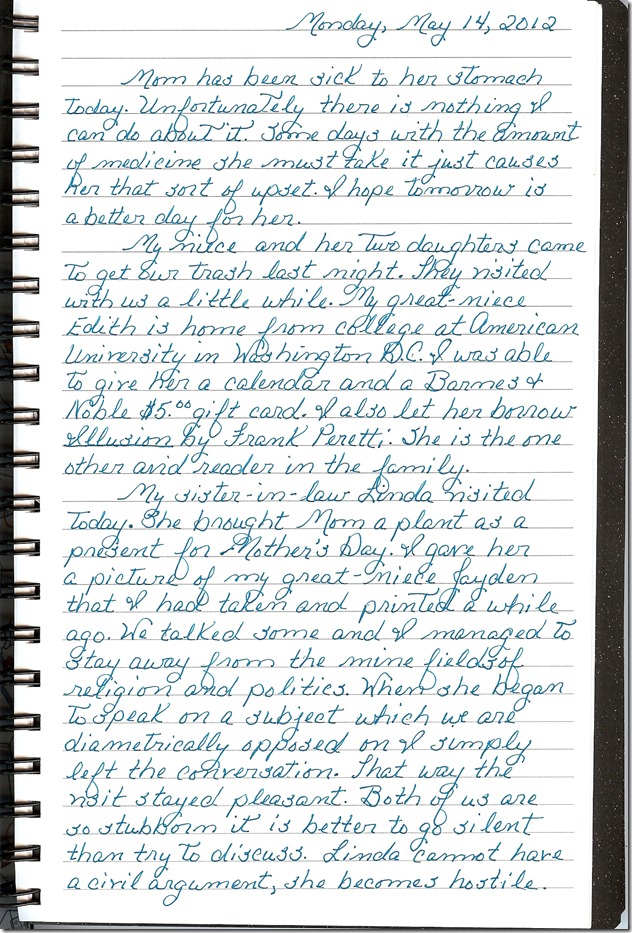 Monday, May 14, 2012
Mom has been sick to her stomach
today. Unfortunately there is nothing I
can do about it. Some days with the amount
of medicine she must take it just causes
her that sort of upset. I hope tomorrow is
a better day for her.
My niece and her two daughters came
to get our trash last night. They visited
with us a little while. My great-niece
Edith is home from college at American
University in Washington D.C. I was able
to give her a calendar and a Barnes &
Noble $5.00 gift card. I also let her borrow
Illusion by Frank Peretti. She is the one
other avid reader in the family.
My sister-in-law Linda visited
today. She brought Mom a plant as a
present for Mother's Day. I gave her
a picture of my great-niece Jayden
that I had taken and printed a while
ago. We talked some and I managed to
stay away from the mine fields of
religion and politics. When she began
to speak on a subject which we are
diametrically opposed on I simply
left the conversation. That way the
visit stayed pleasant. Both of us are
so stubborn it is better to go silent
than try to discuss. Linda cannot have
a civil argument, she becomes hostile.